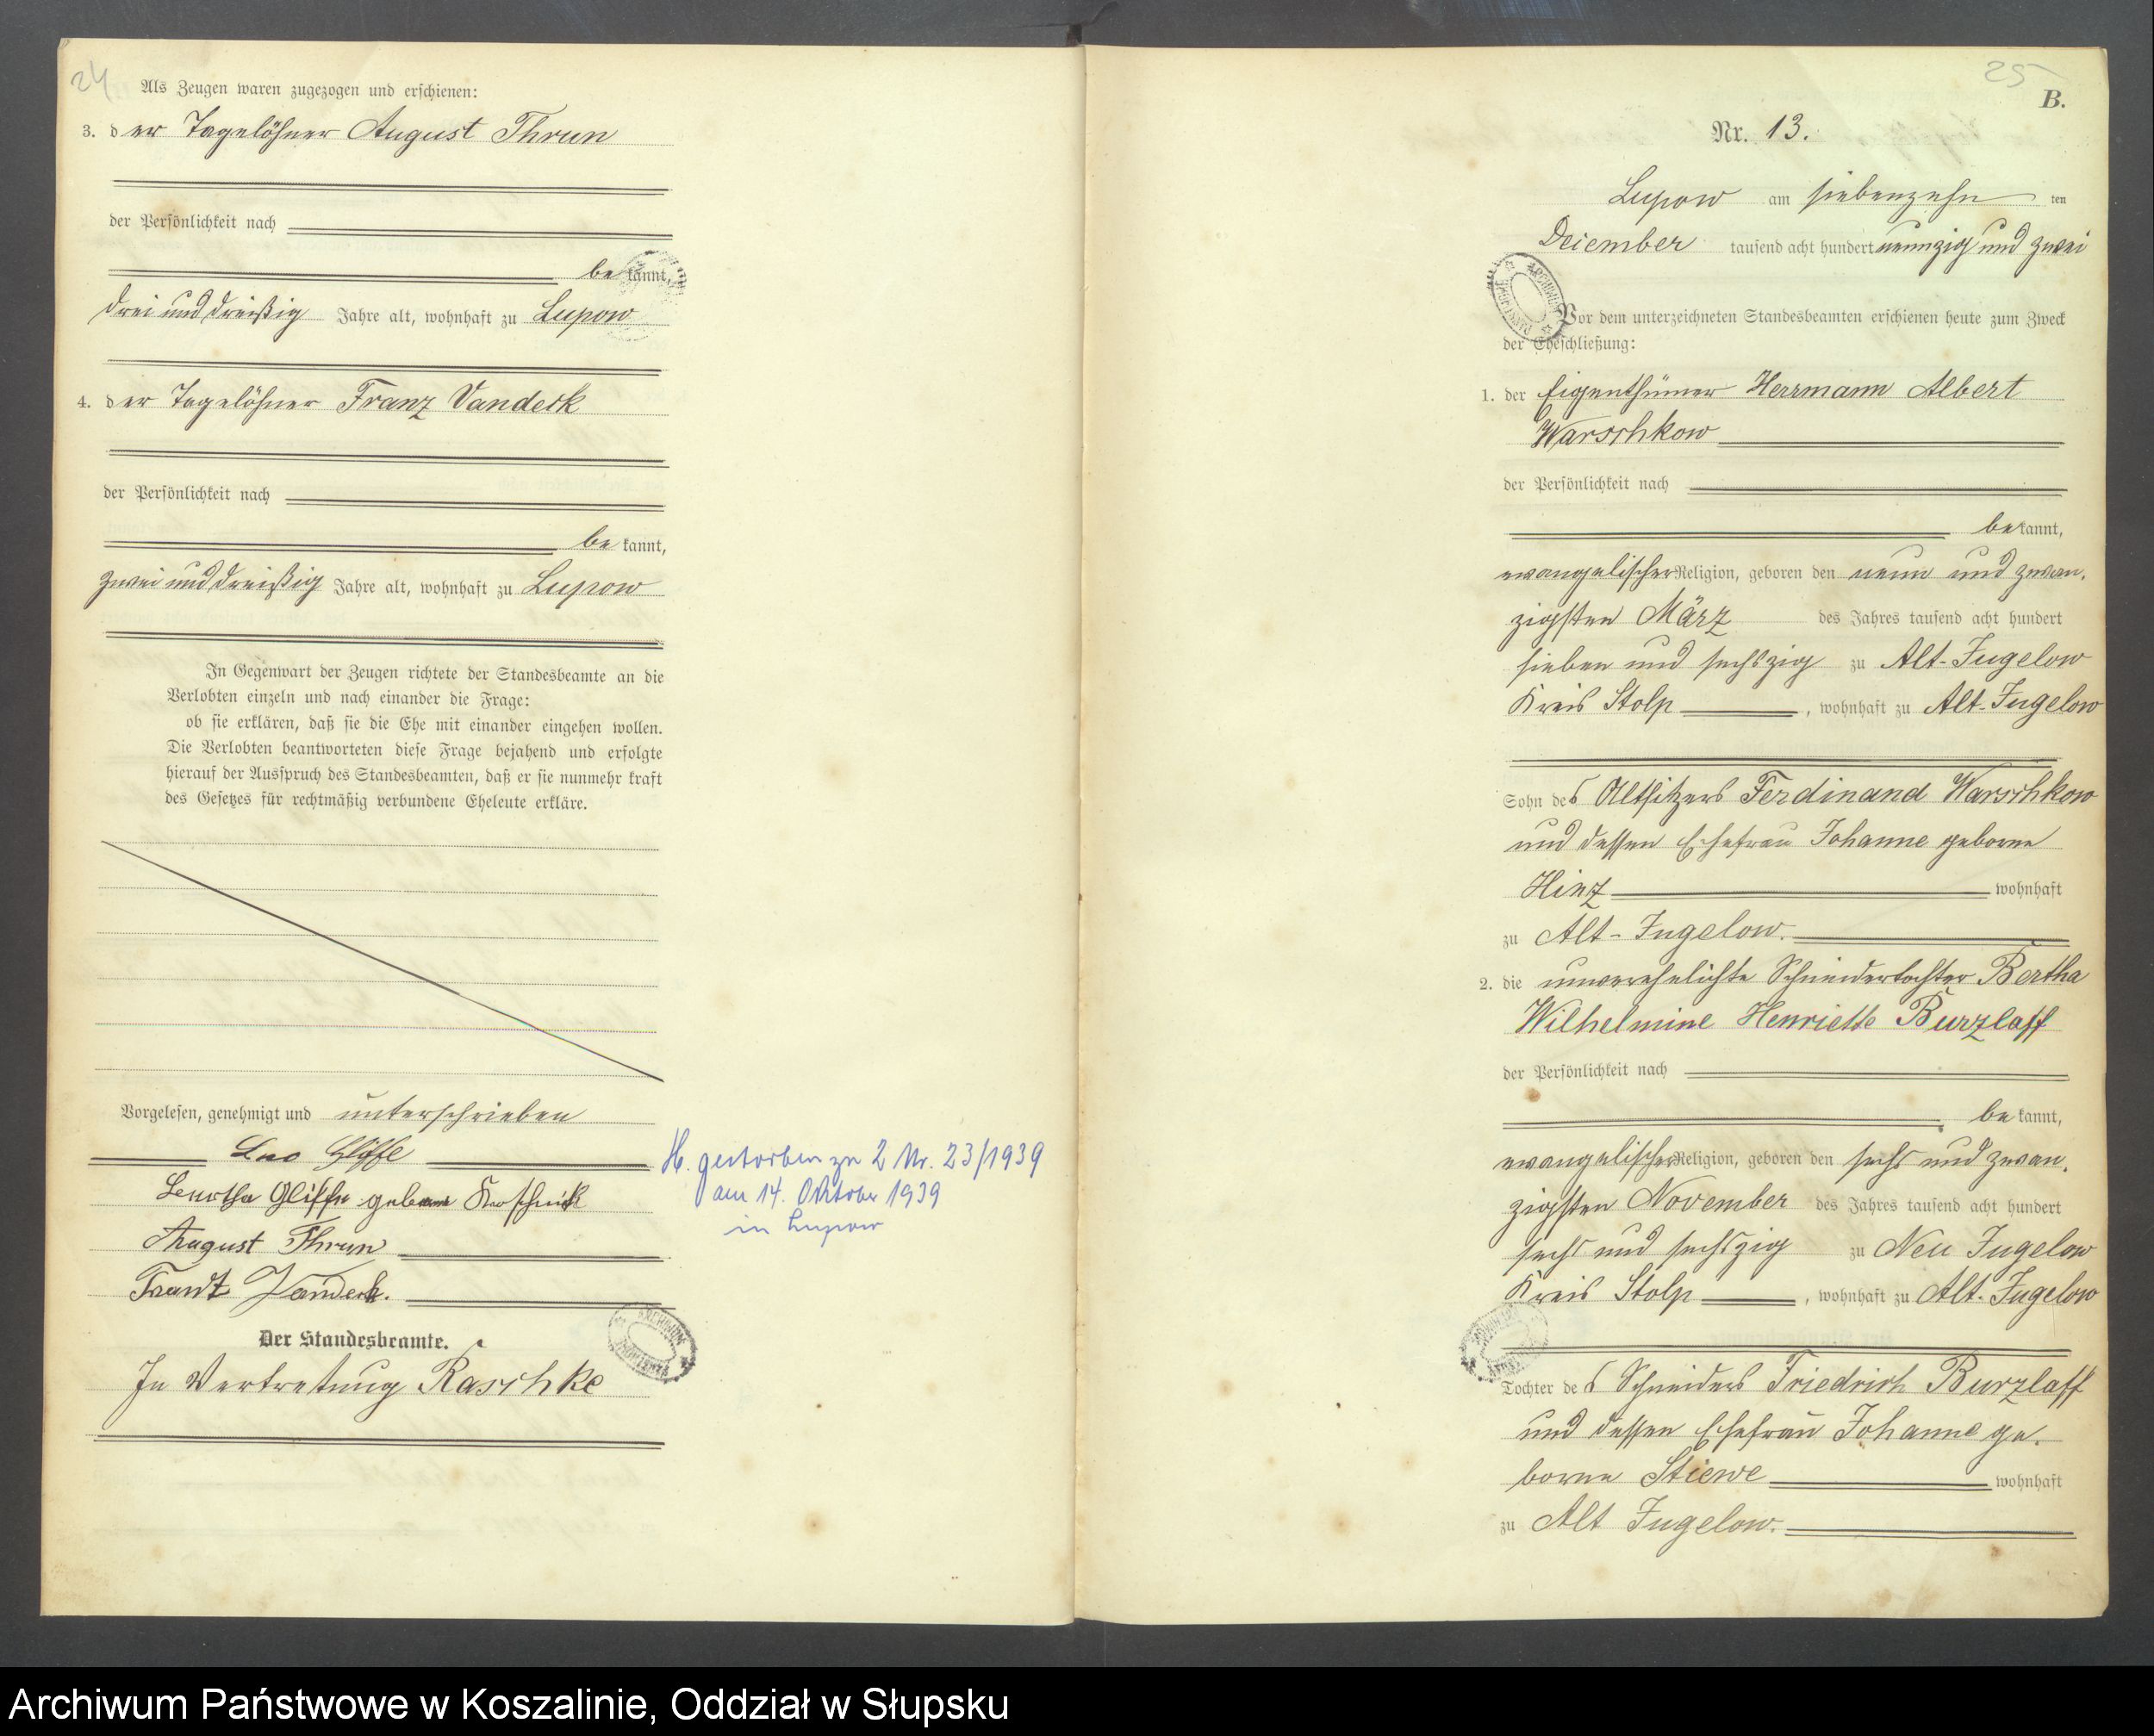 24
Als Zeugen waren zugezogen und erschienen:
3. der Tagelöhner August Thrun
der Persönlichkeit nach
bekannt,
drei und dreißig Jahre alt, wohnhaft zu Lupow
4. der Tagelöhner Franz Vanderk
der Persönlichkeit nach
bekannt,
zwei und dreißig Jahre alt, wohnhaft zu Lupow
In Gegenwart der Zeugen richtete der Standesbeamte an die
Verlobten einzeln und nach einander die Frage:
ob sie erklären, daß sie die Ehe mit einander eingehen wollen.
Die Verlobten beantworteten diese Frage bejahend und erfolgte
hierauf der Ausspruch des Standesbeamten, daß er sie nunmehr kraft
des Gesetzes für rechtmäßig verbundene Eheleute erkläre.
Vorgelesen, genehmigt und unterschrieben
August Thrun
Der Standesbeamte.
In Vertretung Raschke
H. gestorben zu 2 Nr. 23/1939
am 14. Oktober 1939
in Lupow
25
B.
Nr. 13.
Lupow am siebenzehnten
Dezember tausend acht hundert neunzig und zwei
Vor dem unterzeichneten Standesbeamten erschienen heute zum Zweck
der Eheschließung:
1. der Eigenthümer Herrmann Albert
Warschkow
der Persönlichkeit nach
bekannt,
evangelischer Religion, geboren den neun und zwan-
zigsten März des Jahres tausend acht hundert
sieben und sechszig zu Alt-Jugelow
Kreis Stolp, wohnhaft zu Alt-Jugelow
Sohn des Altsitzers Ferdinand Warschkow
und dessen Ehefrau Johanne geborne
Hinz wohnhaft
zu Alt-Jugelow.
2. die unverehelichte Schneidertochter Bertha
Wilhelmine Henriette Burzlaff
der Persönlichkeit nach
bekannt,
evangelischer Religion, geboren den sechs und zwan-
zigsten November des Jahres tausend acht hundert
sechs und sechszig zu Neu Jugelow
Kreis Stolp, wohnhaft zu Alt-Jugelow
Tochter des Schneiders Friedrich Burzlaff
und dessen Ehefrau Johanne ge-
borne Stiewe wohnhaft
zu Alt Jugelow.
Archiwum Państwowe w Koszalinie, Oddział w Słupsku